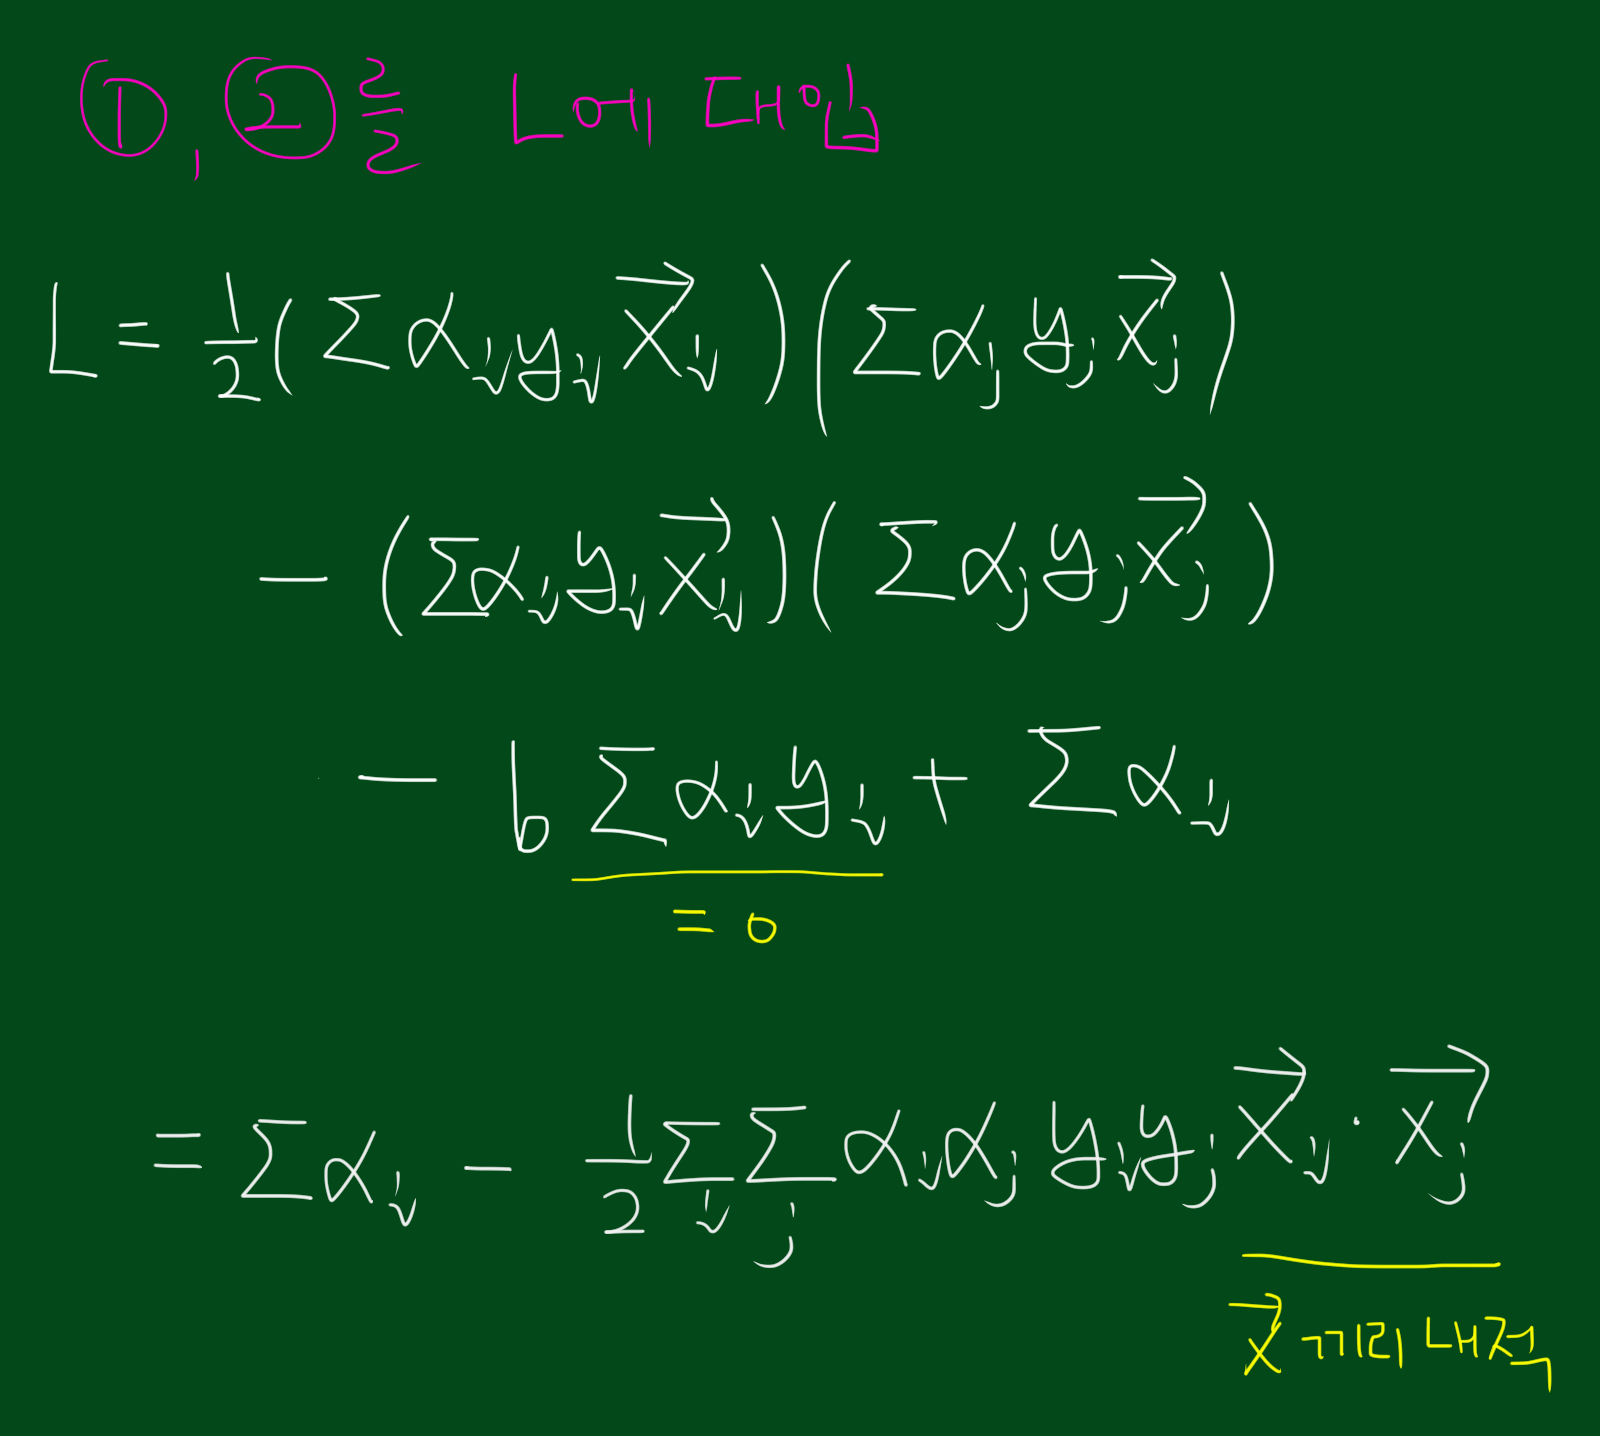 ①, ② 를 L에 대입
L = 1/2 (Σ αᵢ yᵢ x⃗ᵢ) (Σ αⱼ yⱼ x⃗ⱼ)
− (Σ αᵢ yᵢ x⃗ᵢ) (Σ αⱼ yⱼ x⃗ⱼ)
− b Σ αᵢ yᵢ + Σ αᵢ
= 0
= Σ αᵢ − 1/2 Σᵢ Σⱼ αᵢ αⱼ yᵢ yⱼ x⃗ᵢ · x⃗ⱼ
x⃗ 끼리 내적